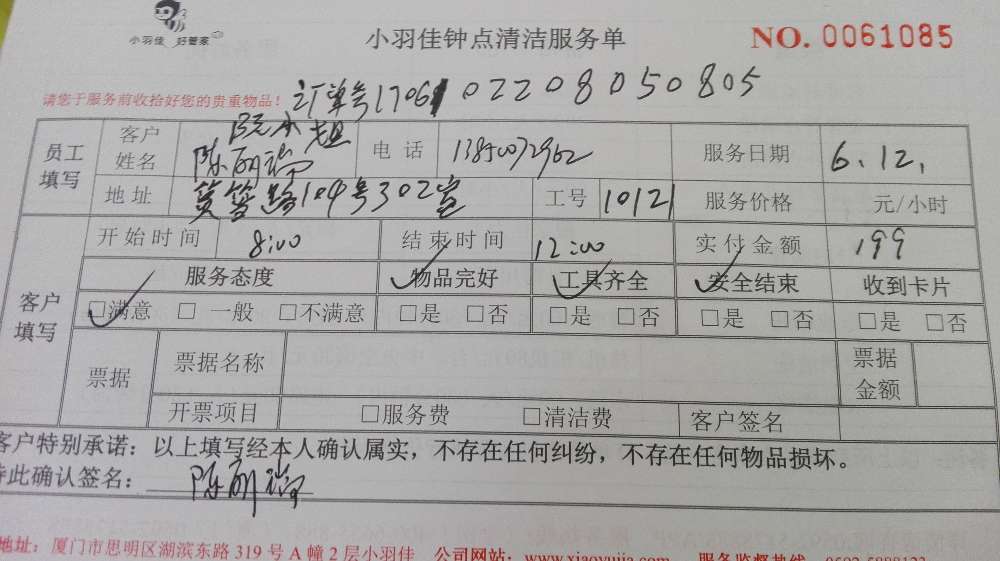 小羽佳 好管家
小羽佳钟点清洁服务单
NO. 0061085
请您于服务前收拾好您的贵重物品！
订单号1706102208050805
员工填写
客户姓名 阮小姐 陈丽 电话 13850072962 服务日期 6.12.
地址 筼筜路104号302室 工号 10121 服务价格 元/小时
客户填写
开始时间 8:00 结束时间 12:00 实付金额 199
服务态度 物品完好 工具齐全 安全结束 收到卡片
□满意 □ 一般 □不满意 □是 □否 □是 □否 □是 □否 □是 □否
票据 票据名称 票据金额
开票项目 □服务费 □清洁费 客户签名
客户特别承诺：以上填写经本人确认属实，不存在任何纠纷，不存在任何物品损坏。
特此确认签名： 陈丽
地址：厦门市思明区湖滨东路 319 号 A 幢 2 层小羽佳 公司网站：www.xiaoyujia.com 服务监督热线